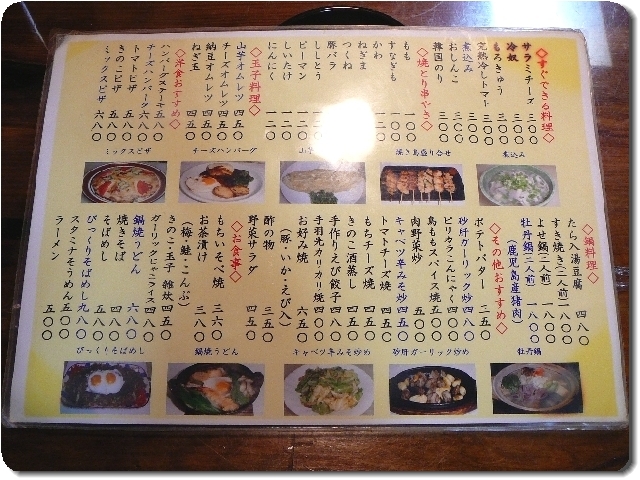 ◇すぐできる料理◇
サラミチーズ 三〇〇
冷奴 三〇〇
もろきゅう 三〇〇
完熟冷しトマト 三〇〇
煮込み 三〇〇
おしんこ 三〇〇
韓国のり 二〇〇
◇焼とり串やき◇
もも 一〇〇
すなぎも 一〇〇
かわ 一〇〇
ねぎま
つくね
豚バラ
ししとう
ピーマン
しいたけ
にんにく
◇玉子料理◇
山芋オムレツ 四五〇
チーズオムレツ 四五〇
納豆オムレツ 四五〇
ねぎ玉
◇洋食おすすめ◇
ハンバーグステーキ 五八〇
チーズハンバーグ 六八〇
トマトピザ 五八〇
きのこピザ 五八〇
ミックスピザ 六八〇
煮込み
焼き鳥盛り合せ
チーズハンバーグ
ミックスピザ
◇鍋料理◇
たら入湯豆腐 四八〇
すき焼き(二人前)
よせ鍋(二人前)
牡丹鍋(二人前) 一八〇〇
(鹿児島産猪肉)
◇その他おすすめ◇
ポテトバター 二五〇
砂肝ガーリック炒め 四八〇
ピリカラこんにゃく 四〇〇
鳥ももスパイス焼 五〇〇
肉野菜炒め 五〇〇
キャベツ辛みそ炒め 四五〇
トマトチーズ焼 四五〇
もちチーズ焼 四五〇
きのこ酒蒸し 四五〇
手作りえび餃子 四五〇
手羽先カリカリ焼 四〇〇
お好み焼 六五〇
(豚・いか・えび入)
酢の物 三五〇
野菜サラダ 四五〇
◇お食事◇
もちいそべ焼 三六〇
お茶漬け 三八〇
(梅・鮭・こんぶ)
きのこ・玉子雑炊 四五〇
ガーリックじゃこライス 四五〇
鍋焼うどん 六八〇
焼きそば 五〇〇
そばめし 五八〇
びっくりそばめし 九八〇
スタミナそうめん 五五〇
ラーメン 五〇〇
牡丹鍋
砂肝ガーリック炒め
キャベツ辛みそ炒め
鍋焼うどん
びっくりそばめし